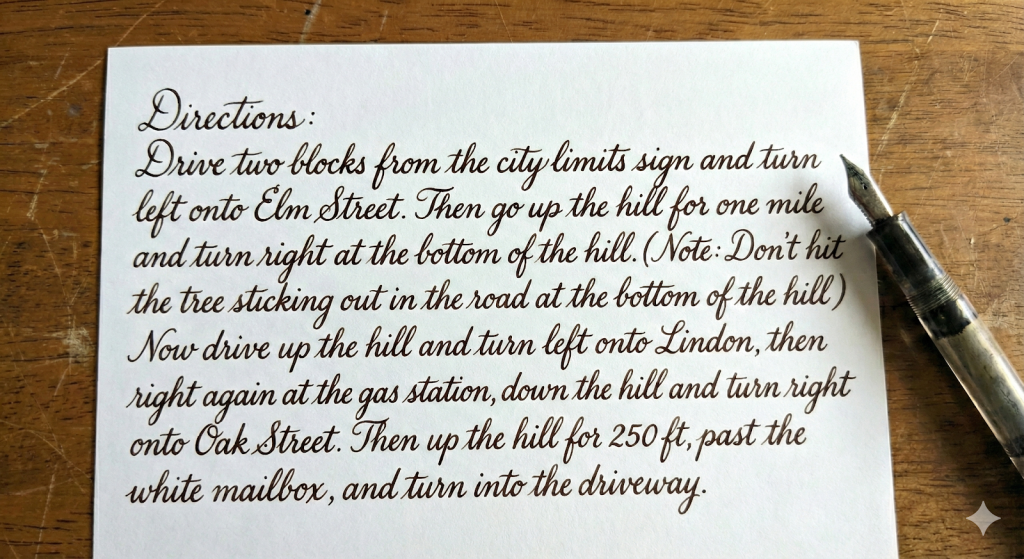 Directions:
Drive two blocks from the city limits sign and turn
left onto Elm Street. Then go up the hill for one mile
and turn right at the bottom of the hill. (Note: Don't hit
the tree sticking out in the road at the bottom of the hill)
Now drive up the hill and turn left onto Lindon, then
right again at the gas station, down the hill and turn right
onto Oak Street. Then up the hill for 250 ft, past the
white mailbox, and turn into the driveway.